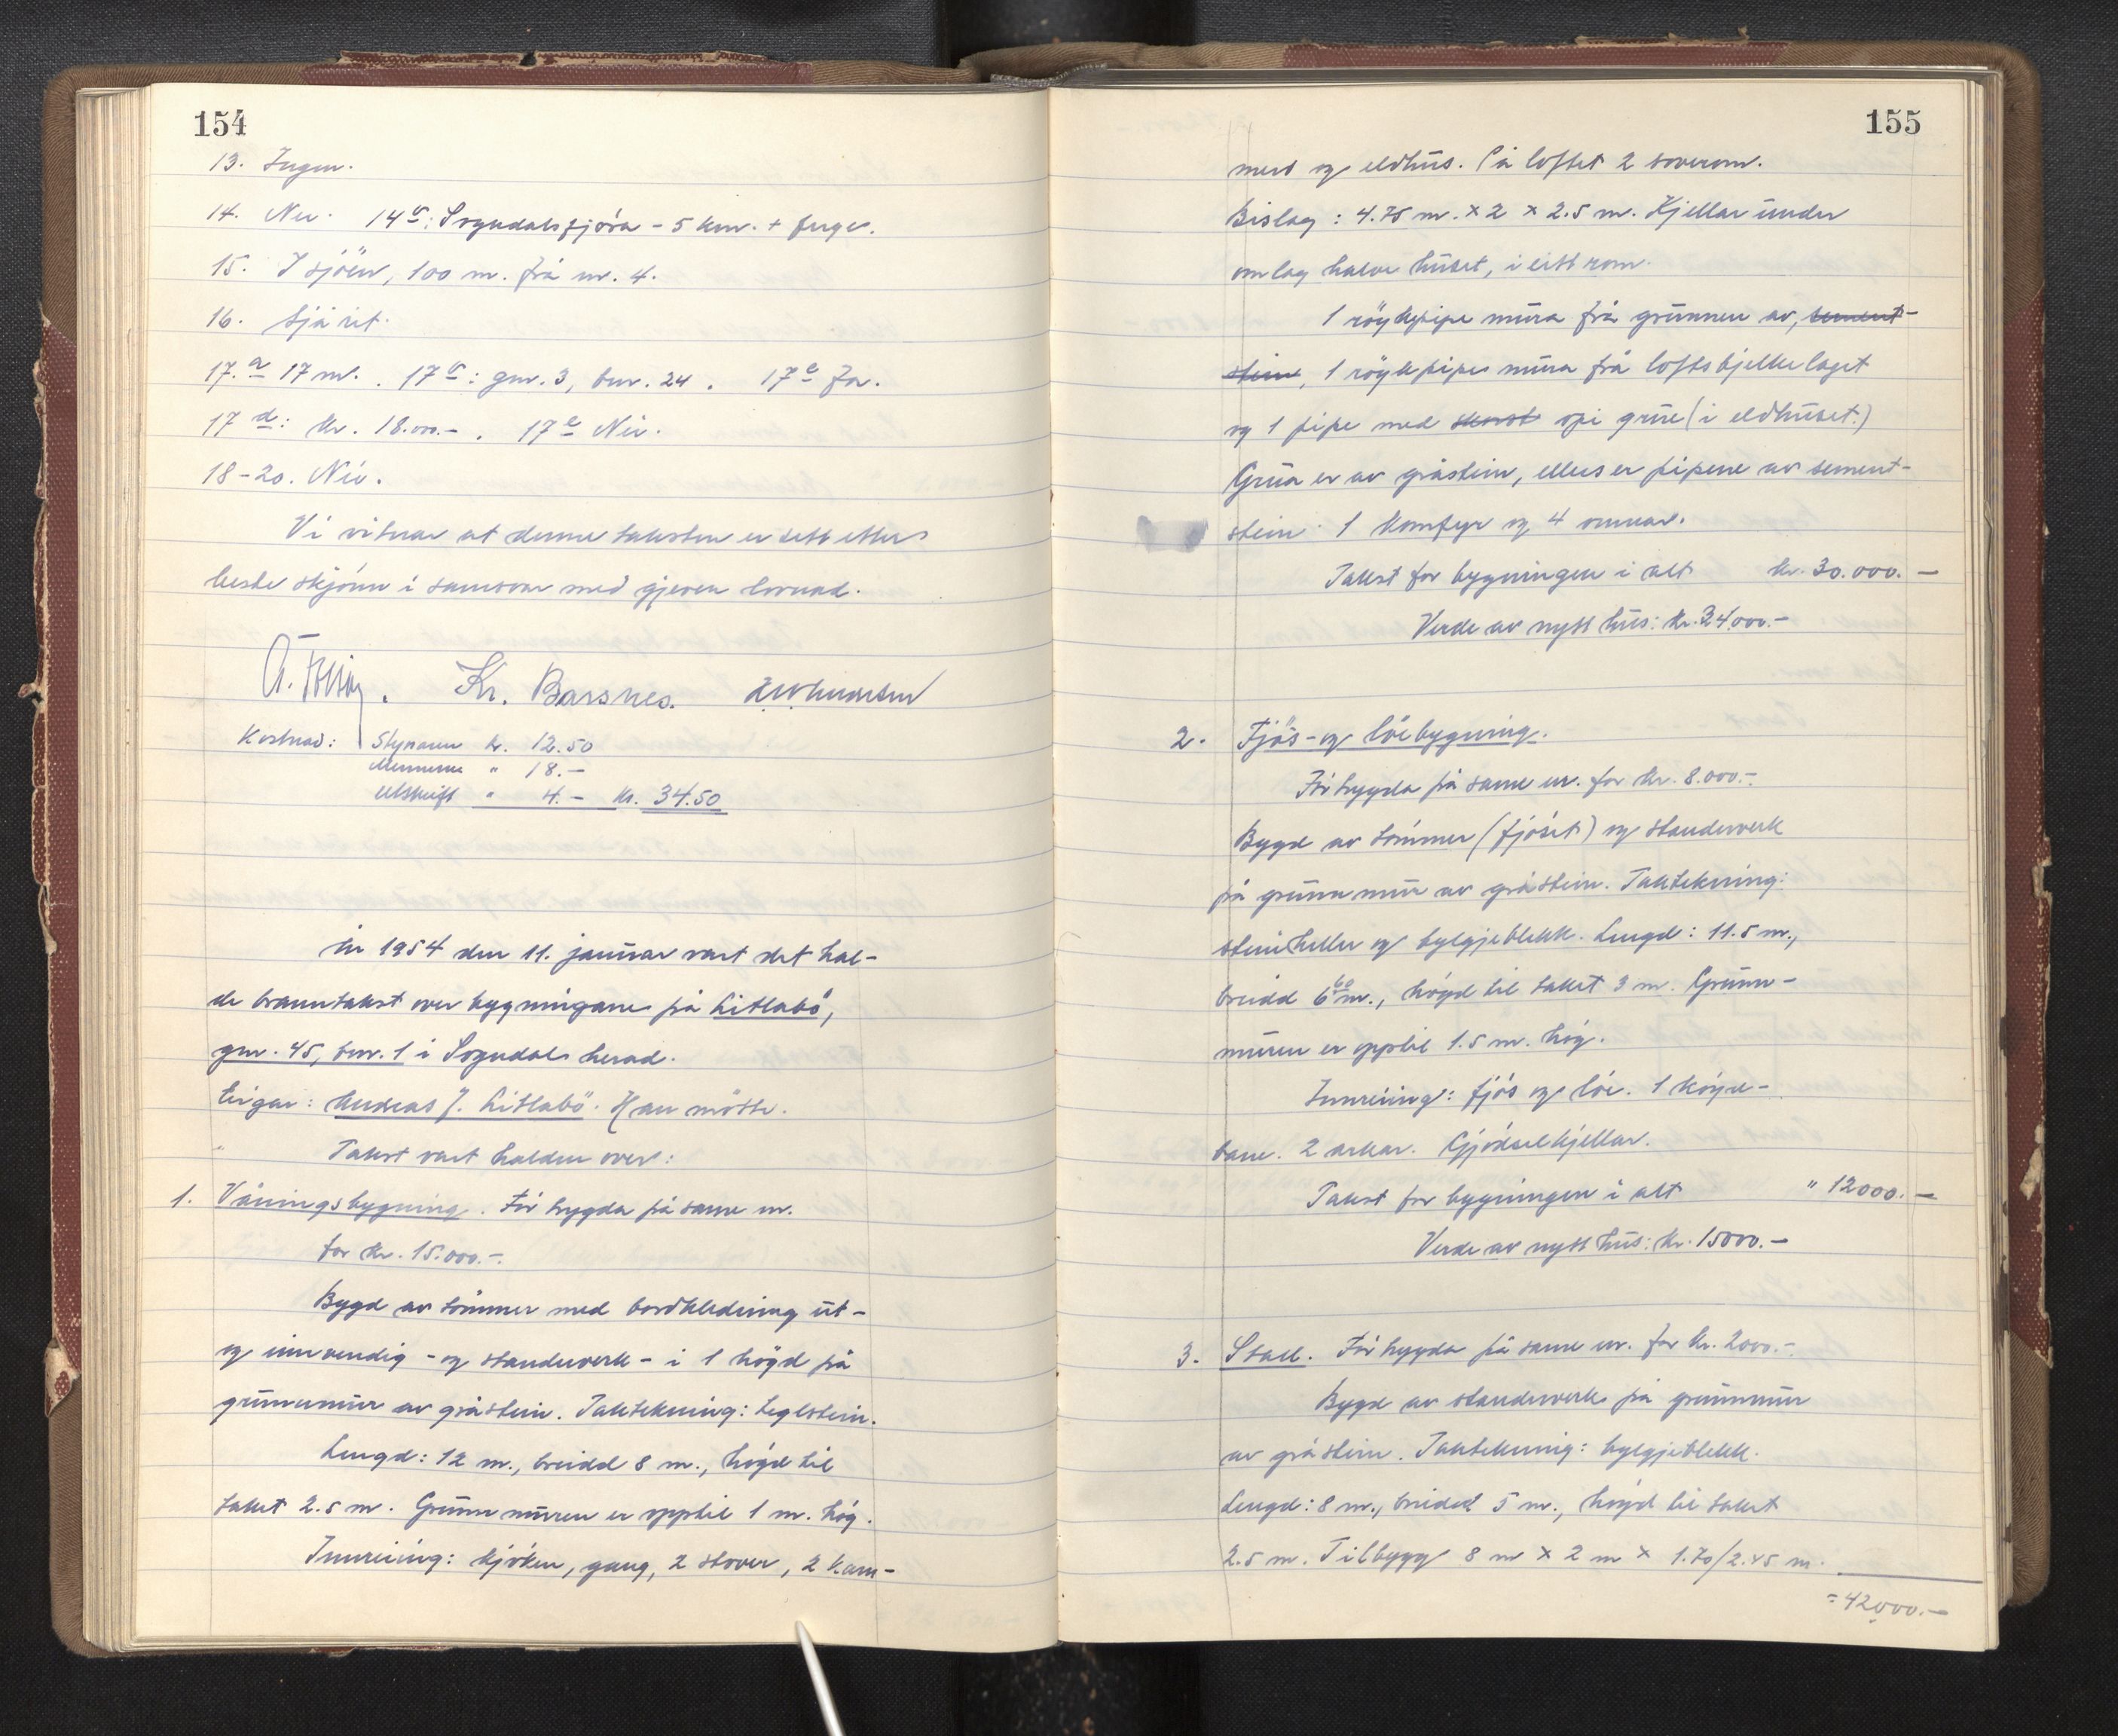 154
13. Ingen.
14. Nei. 14b: Sogndalsfjöra - 5 km. + ferge.
15. I sjöen, 100 m. frå nr. 4.
16. Sjå rit.
17.a 17 m. . 17b: gnr. 3, bnr. 24 . 17c Ja.
17 d: kr. 18.000.- . 17e Nei.
18-20. Nei.
Vi vitnar at denne taksten er sett etter
beste skjönn i samsvar med gjeven lovnad.
Kr. Barsnes.
Kostnad: Styraren kr. 12.50
Mennene " 18.-
Utskrift " 4.- kr. 34.50
År 1954 den 11. januar vart det hal-
de branntakst over bygningane på Litlabö,
gnr. 45, bnr. 1 i Sogndal herad.
Eigar: Andreas J. Litlabö. Han mötte.
Takst vart halden over:
1. Våningsbygning. För trygda på same nr.
for kr. 15.000.-.
Bygd av tömmer med bordkledning ut-
og innvendig - og standerverk - i 1 högd på
grunnmur av gråstein. Taktekning: teglstein.
Lengd: 12 m., breidd 8 m., högd til
taket 2.5 m. Grunnmuren er opptil 1 m. hög.
Innreiing: kjöken, gang, 2 stover, 2 kam-
155
mers og eldhus. På loftet 2 soverom.
Bislag: 4.75 m. x 2 x 2.5 m. Kjellar under
om lag halve huset, i eitt rom.
1 röykpipe mura frå grunnen av, sement-
stein, 1 röykpipe mura frå loftsbjelkelaget
og 1 pipe med skorst opi grue (i eldhuset.)
Grua er av gråstein, elles er pipene av sement-
stein. 1 komfyr og 4 omnar.
Takst for bygningen i alt kr. 30.000.-
Verde av nytt hus: kr. 34.000.-
2. Fjös- og löebygning.
För trygda på same nr. for kr. 8.000.-.
Bygd av tömmer (fjöset) og standerverk
på grunnmur av gråstein. Taktekning:
steinheller og bylgjeblekk. Lengd: 11.5 m.,
breidd 6.60 m., högd til taket 3 m. Grunn-
muren er opptil 1.5 m. hög.
Innreiing: fjös og löe. 1 köyre-
bane. 2 arkar. Gjödselkjellar.
Takst for bygningen i alt " 12000.-
Verde av nytt hus: kr. 15000.-
3. Stall. För trygda på same nr. for kr. 2000.-.
Bygd av standerverk på grunnmur
av gråstein. Taktekning: bylgjeblekk.
Lengd: 8 m., breidd 5 m., högd til taket
2.5 m. Tilbygg 8 m x 2 m x 1.70/2.45 m.
= 42000.-